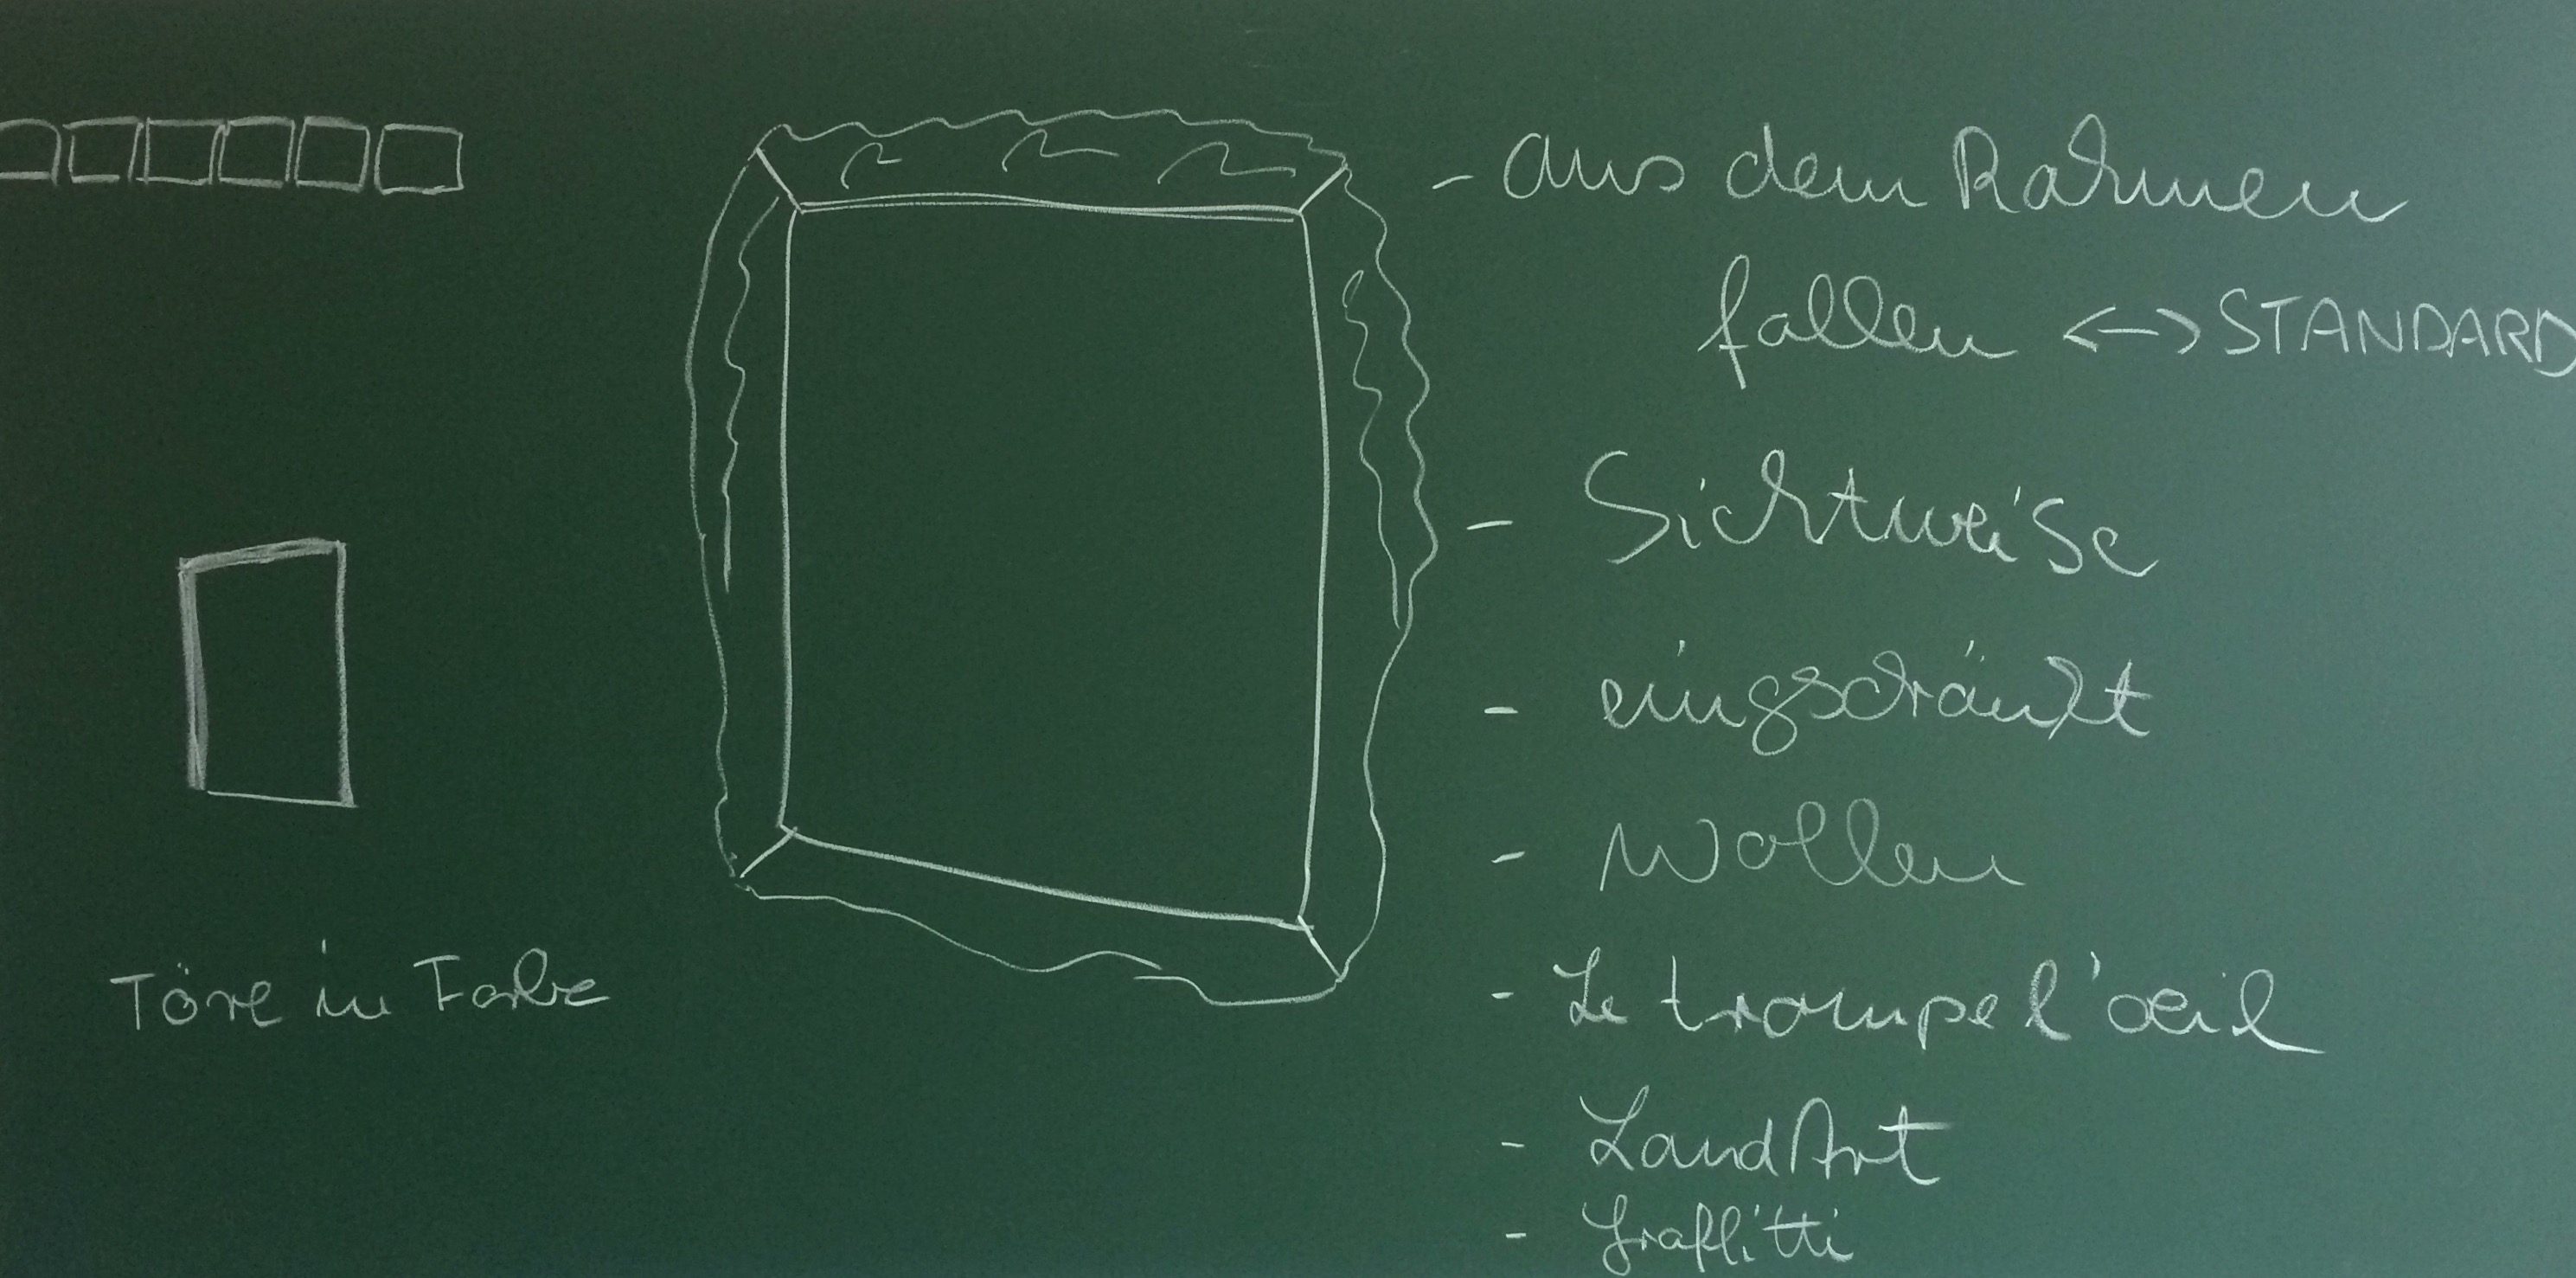 - aus dem Rahmen
fallen <-> STANDARD
- Sichtweise
- eingschränkt
- Wollen
- Le trompe l'oeil
- LandArt
- Graffitti
Töne in Farbe